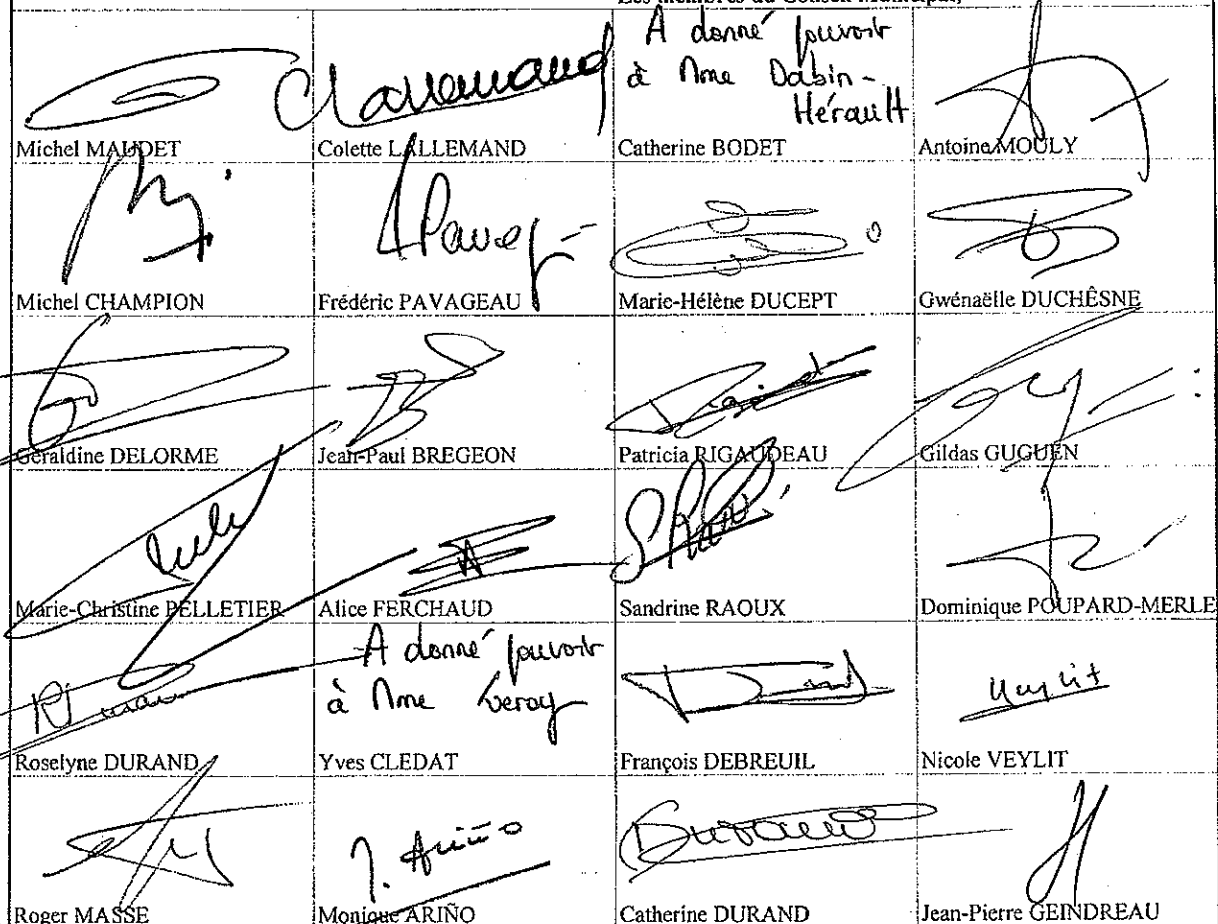 Les membres du Conseil Municipal,
A donné pouvoir
à Mme Dabin-
Hérault
Michel MAUDET
Colette LALLEMAND
Catherine BODET
Antoine MOULY
Michel CHAMPION
Frédéric PAVAGEAU
Marie-Hélène DUCEPT
Gwénaëlle DUCHÊSNE
Géraldine DELORME
Jean-Paul BREGEON
Patricia RIGAUDEAU
Gildas GUGUEN
Marie-Christine PELLETIER
Alice FERCHAUD
Sandrine RAOUX
Dominique POUPARD-MERLE
A donné pouvoir
à Mme
Roselyne DURAND
Yves CLEDAT
François DEBREUIL
Nicole VEYLIT
Roger MASSE
Monique ARIÑO
Catherine DURAND
Jean-Pierre GEINDREAU